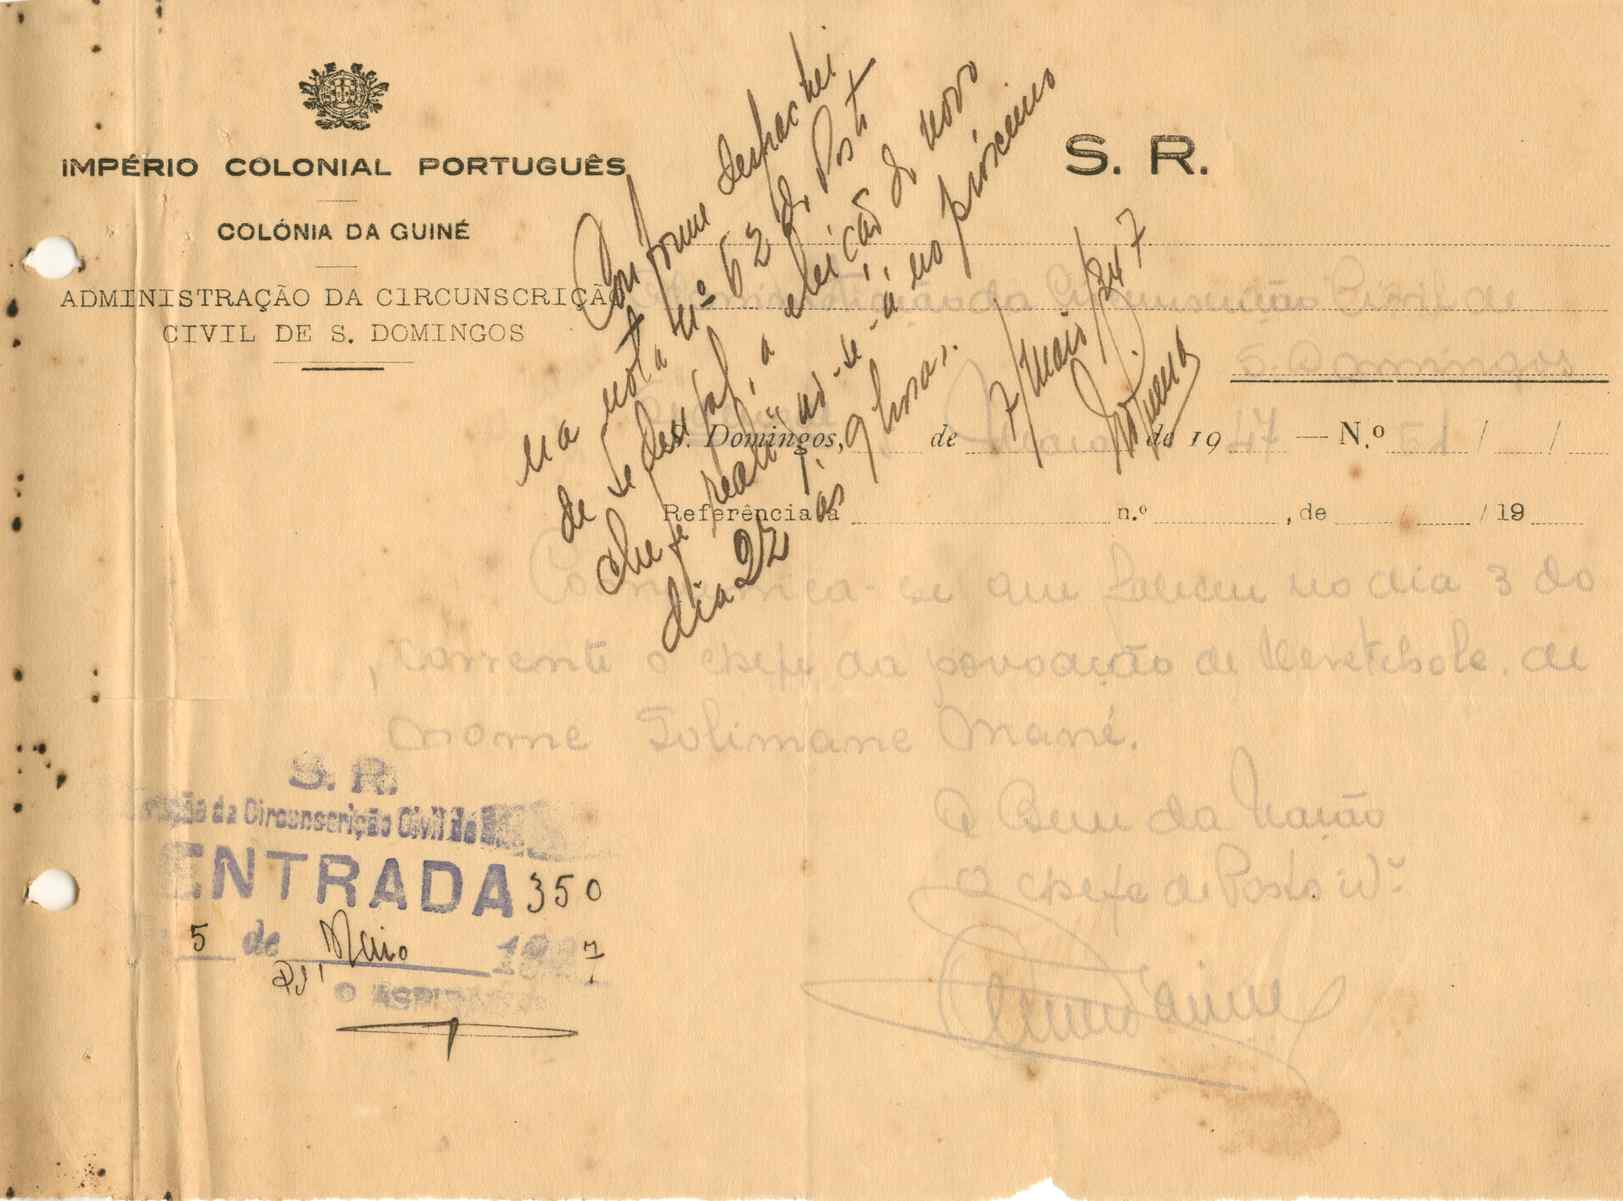 IMPÉRIO COLONIAL PORTUGUÊS
COLÓNIA DA GUINÉ
ADMINISTRAÇÃO DA CIRCUNSCRIÇÃO
CIVIL DE S. DOMINGOS
S. R.
Conforme despachei
na nota nº 62 do Posto
de a eleição do novo
chefe realizar-se-á no próximo
dia 22 às 9 horas.
7/Maio/947
Administração da Circunscrição Civil de
S. Domingos
Domingos, de Maio de 1947 — N.º 51 / /
Referência a n.º , de / 19
Comunica-se que faleceu no dia 3 do
corrente o chefe da povoação de de
nome Solimane Mané.
A Bem da Nação
O chefe de Posto
S. R.
da Circunscrição Civil de
ENTRADA 350
5 de Maio 1947
O ASPIRANTE